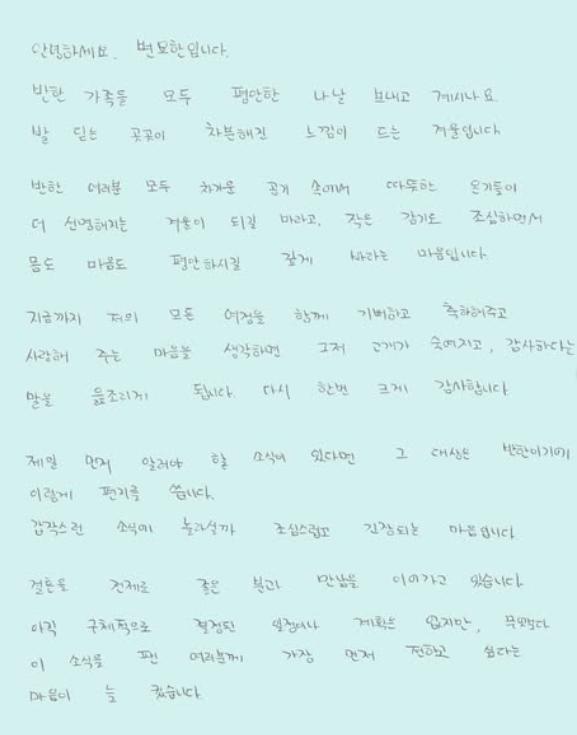 안녕하세요. 변요한입니다.
반한 가족들 모두 평안한 나날 보내고 계시나요.
발 딛는 곳곳이 차분해진 느낌이 드는 겨울입니다
반한 여러분 모두 차가운 공기 속에서 따뜻한 온기들이
더 선명해지는 겨울이 되길 바라고, 작은 감기도 조심하면서
몸도 마음도 평안하시길 깊게 바라는 마음입니다.
지금까지 저의 모든 여정을 함께 기뻐하고 축하해주고
사랑해 주는 마음을 생각하면 그저 고개가 숙여지고, 감사하다는
말을 읊조리게 됩니다. 다시 한번 크게 감사합니다
제일 먼저 알려야 할 소식이 있다면 그 대상은 반한이기에
이렇게 편지를 씁니다.
갑작스런 소식에 놀라실까 조심스럽고 긴장되는 마음입니다
결혼을 전제로 좋은 분과 만남을 이어가고 있습니다.
아직 구체적으로 결정된 일정이나 계획은 없지만, 무엇보다
이 소식을 팬 여러분께 가장 먼저 전하고 싶다는
마음이 늘 컸습니다.